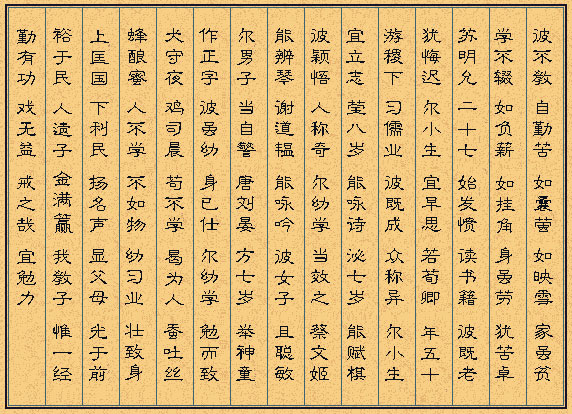 彼不教 自勤苦 如囊萤 如映雪 家虽贫
学不辍 如负薪 如挂角 身虽劳 犹苦卓
苏明允 二十七 始发愤 读书籍 彼既老
犹悔迟 尔小生 宜早思 若荀卿 年五十
游稷下 习儒业 彼既成 众称异 尔小生
宜立志 莹八岁 能咏诗 泌七岁 能赋棋
彼颖悟 人称奇 尔幼学 当效之 蔡文姬
能辨琴 谢道韫 能咏吟 彼女子 且聪敏
尔男子 当自警 唐刘晏 方七岁 举神童
作正字 彼虽幼 身已仕 尔幼学 勉而致
犬守夜 鸡司晨 苟不学 曷为人 蚕吐丝
蜂酿蜜 人不学 不如物 幼习业 壮致身
上匡国 下利民 扬名声 显父母 光于前
裕于民 人遗子 金满籝 我教子 惟一经
勤有功 戏无益 戒之哉 宜勉力